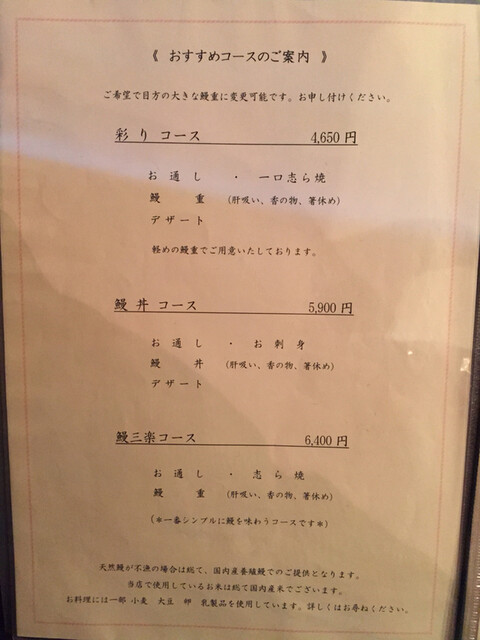 《 おすすめコースのご案内 》
ご希望で目方の大きな鰻重に変更可能です。お申し付けください。
彩り コース 4,650 円
お 通 し ・ 一口志ら焼
鰻 重 (肝吸い、香の物、箸休め)
デザート
軽めの鰻重でご用意いたしております。
鰻 丼 コース 5,900 円
お 通 し ・ お 刺 身
鰻 丼 (肝吸い、香の物、箸休め)
デザート
鰻三楽コース 6,400 円
お 通 し ・ 志 ら 焼
鰻 重 (肝吸い、香の物、箸休め)
(＊一番シンプルに鰻を味わうコースです＊)
天然鰻が不漁の場合は総て、国内産養殖鰻でのご提供となります。
当店で使用しているお米は総て国内産米でございます。
お料理には一部 小麦 大豆 卵 乳製品を使用しています。詳しくはお尋ねください。